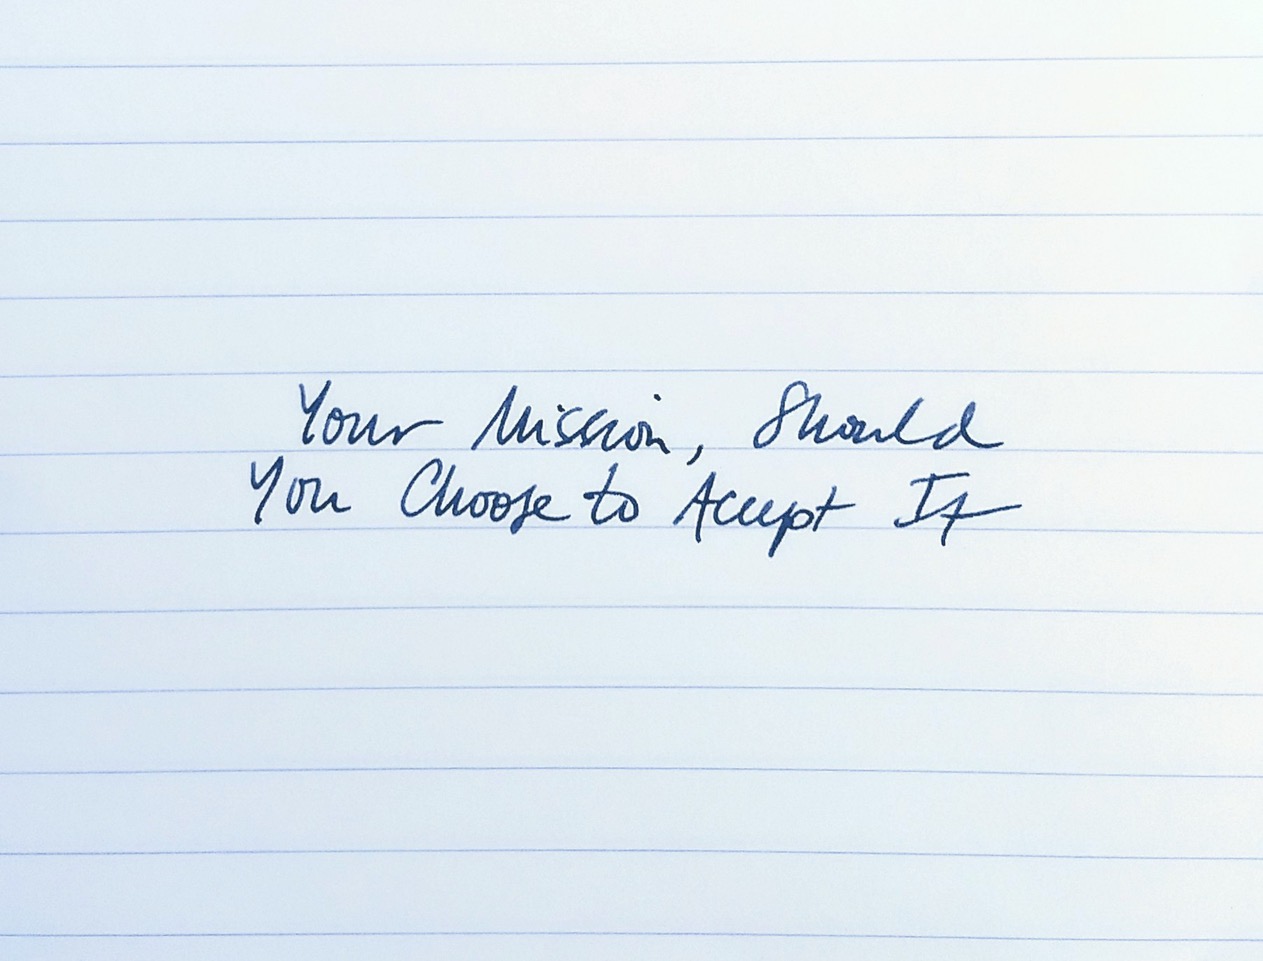 Your Mission, Should
You Choose to Accept It